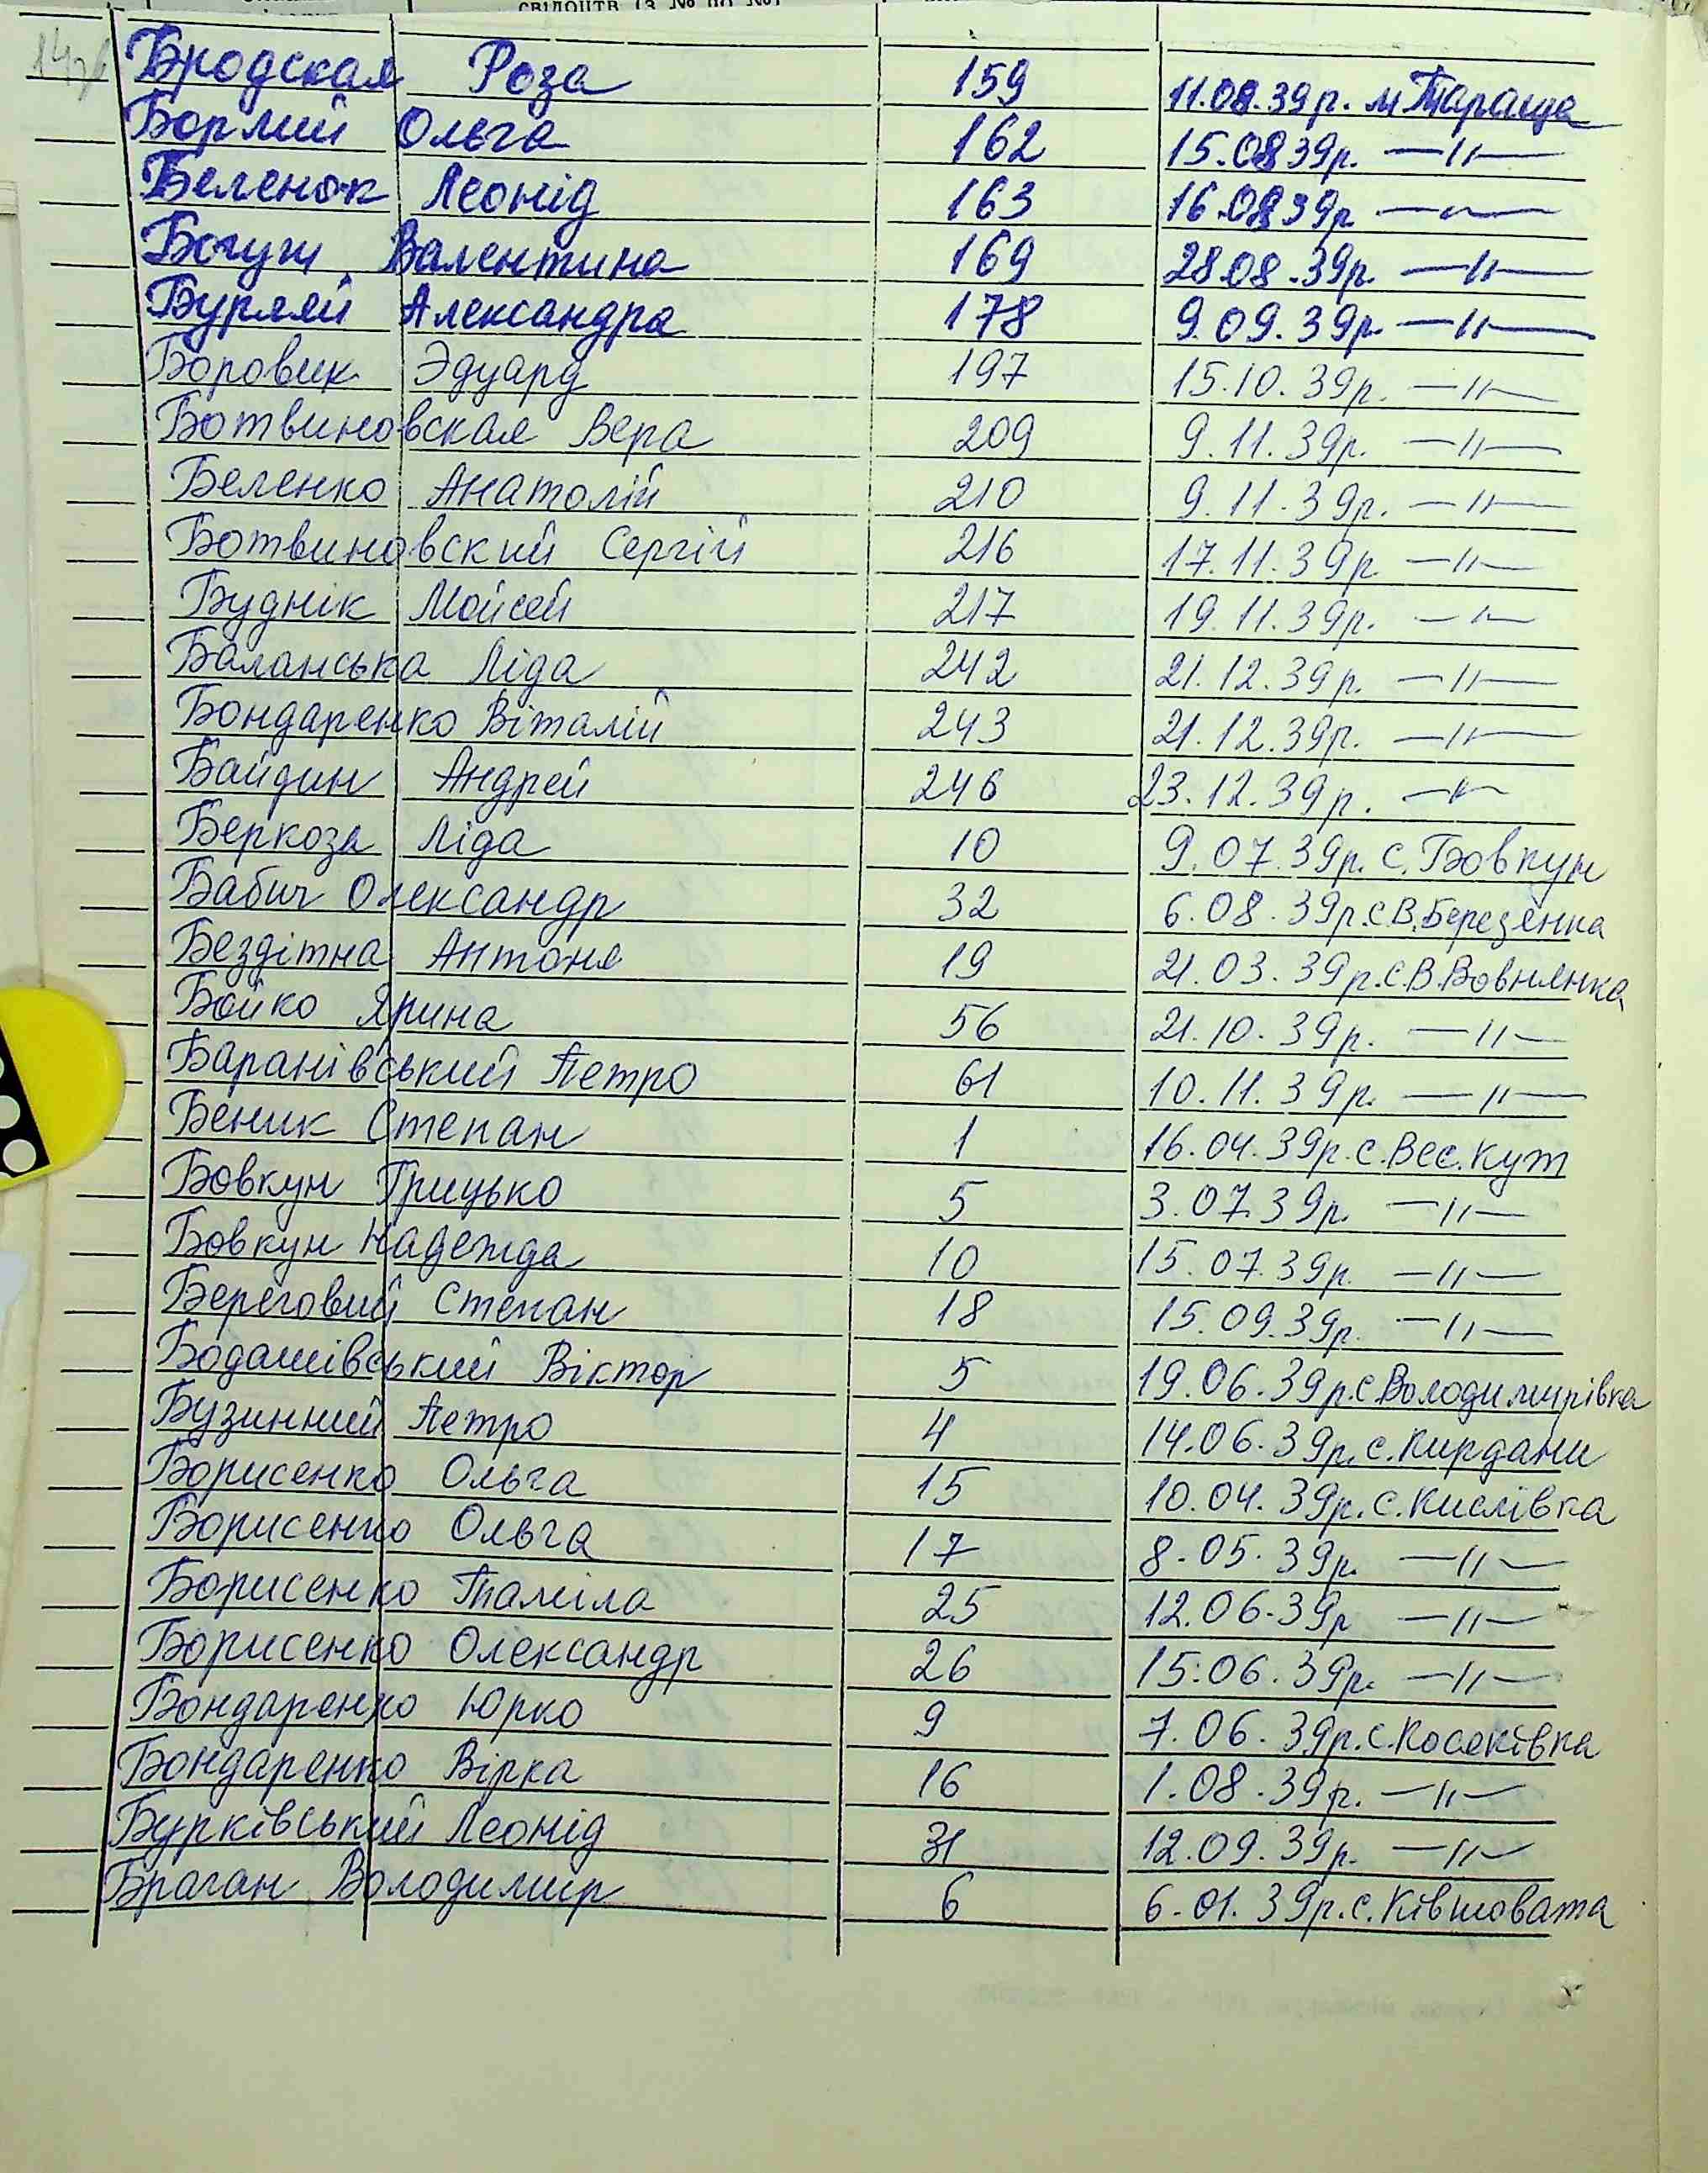 Бродская Роза 159 11.08.39р. м Тараща
Бормий Ольга 162 15.08 39р. —"—
Беленок Леонід 163 16.08 39р. —"—
Богуш Валентина 169 28.08.39р. —"—
Бурлей Александра 178 9.09.39р. —"—
Боровик Эдуард 197 15.10.39р. —"—
Ботвиновская Вера 209 9.11.39р. —"—
Беленко Анатолій 210 9.11.39р. —"—
Ботвиновский Сергій 216 17.11.39р —"—
Буднік Мойсей 217 19.11.39р. —"—
Баланська Ліда 242 21.12.39р. —"—
Бондаренко Віталій 243 21.12.39р. —"—
Байдин Андрей 246 23.12.39р. —"—
Беркоза Ліда 10 9.07.39р. с. Бовкун
Бабич Олександр 32 6.08.39р. с В. Березянка
Бездітна Антоня 19 21.03.39р. с. В. Вовнянка
Бойко Ярина 56 21.10.39р. —"—
Баранівський Петро 61 10.11.39р. —"—
Беник Степан 1 16.04.39р. с. Вес. Кут
Бовкун Грицько 5 3.07.39р. —"—
Бовкун Надежда 10 15.07.39р. —"—
Береговий Степан 18 15.09.39р. —"—
Бодашівський Віктор 5 19.06.39р. с Володимирівка
Бузинний Петро 4 14.06.39р. с. Кирдани
Борисенко Ольга 15 10.04.39р. с. Кислівка
Борисенко Ольга 17 8.05.39р. —"—
Борисенко Таміла 25 12.06.39р —"—
Борисенко Олександр 26 15.06.39р. —"—
Бондаренко Юрко 9 7.06.39р. с. Косяківка
Бондаренко Вірка 16 1.08.39р. —"—
Бурківський Леонід 31 12.09.39р. —"—
Браган Володимир 6 6.01.39р. с. Ківшовата